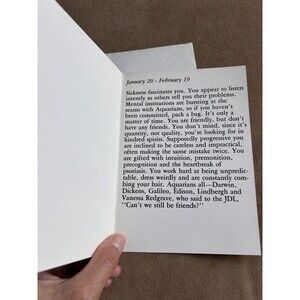 January 20 - February 19
Sickness fascinates you. You appear to listen
intently as others tell you their problems.
Mental institutions are bunting at the
seams with Aquarians, so if you haven't
been committed, pack a bag. It's only a
matter of time. You are friendly, but don't
have any friends. You don't mind, since it's
quantity, not quality, you're looking for in
kindred spirits. Supposedly progressive you
are inclined to be careless and impractical,
often making the same mistake twice. You
are gifted with intuition, premonition,
precognition and the heartbreak of
psoriasis. You work hard at being unpredic-
table, dress weirdly and are constantly com-
bing your hair. Aquarians all—Darwin,
Dickens, Galileo, Edison, Lindbergh and
Vanessa Redgrave, who said to the JDL,
"Can't we still be friends?"